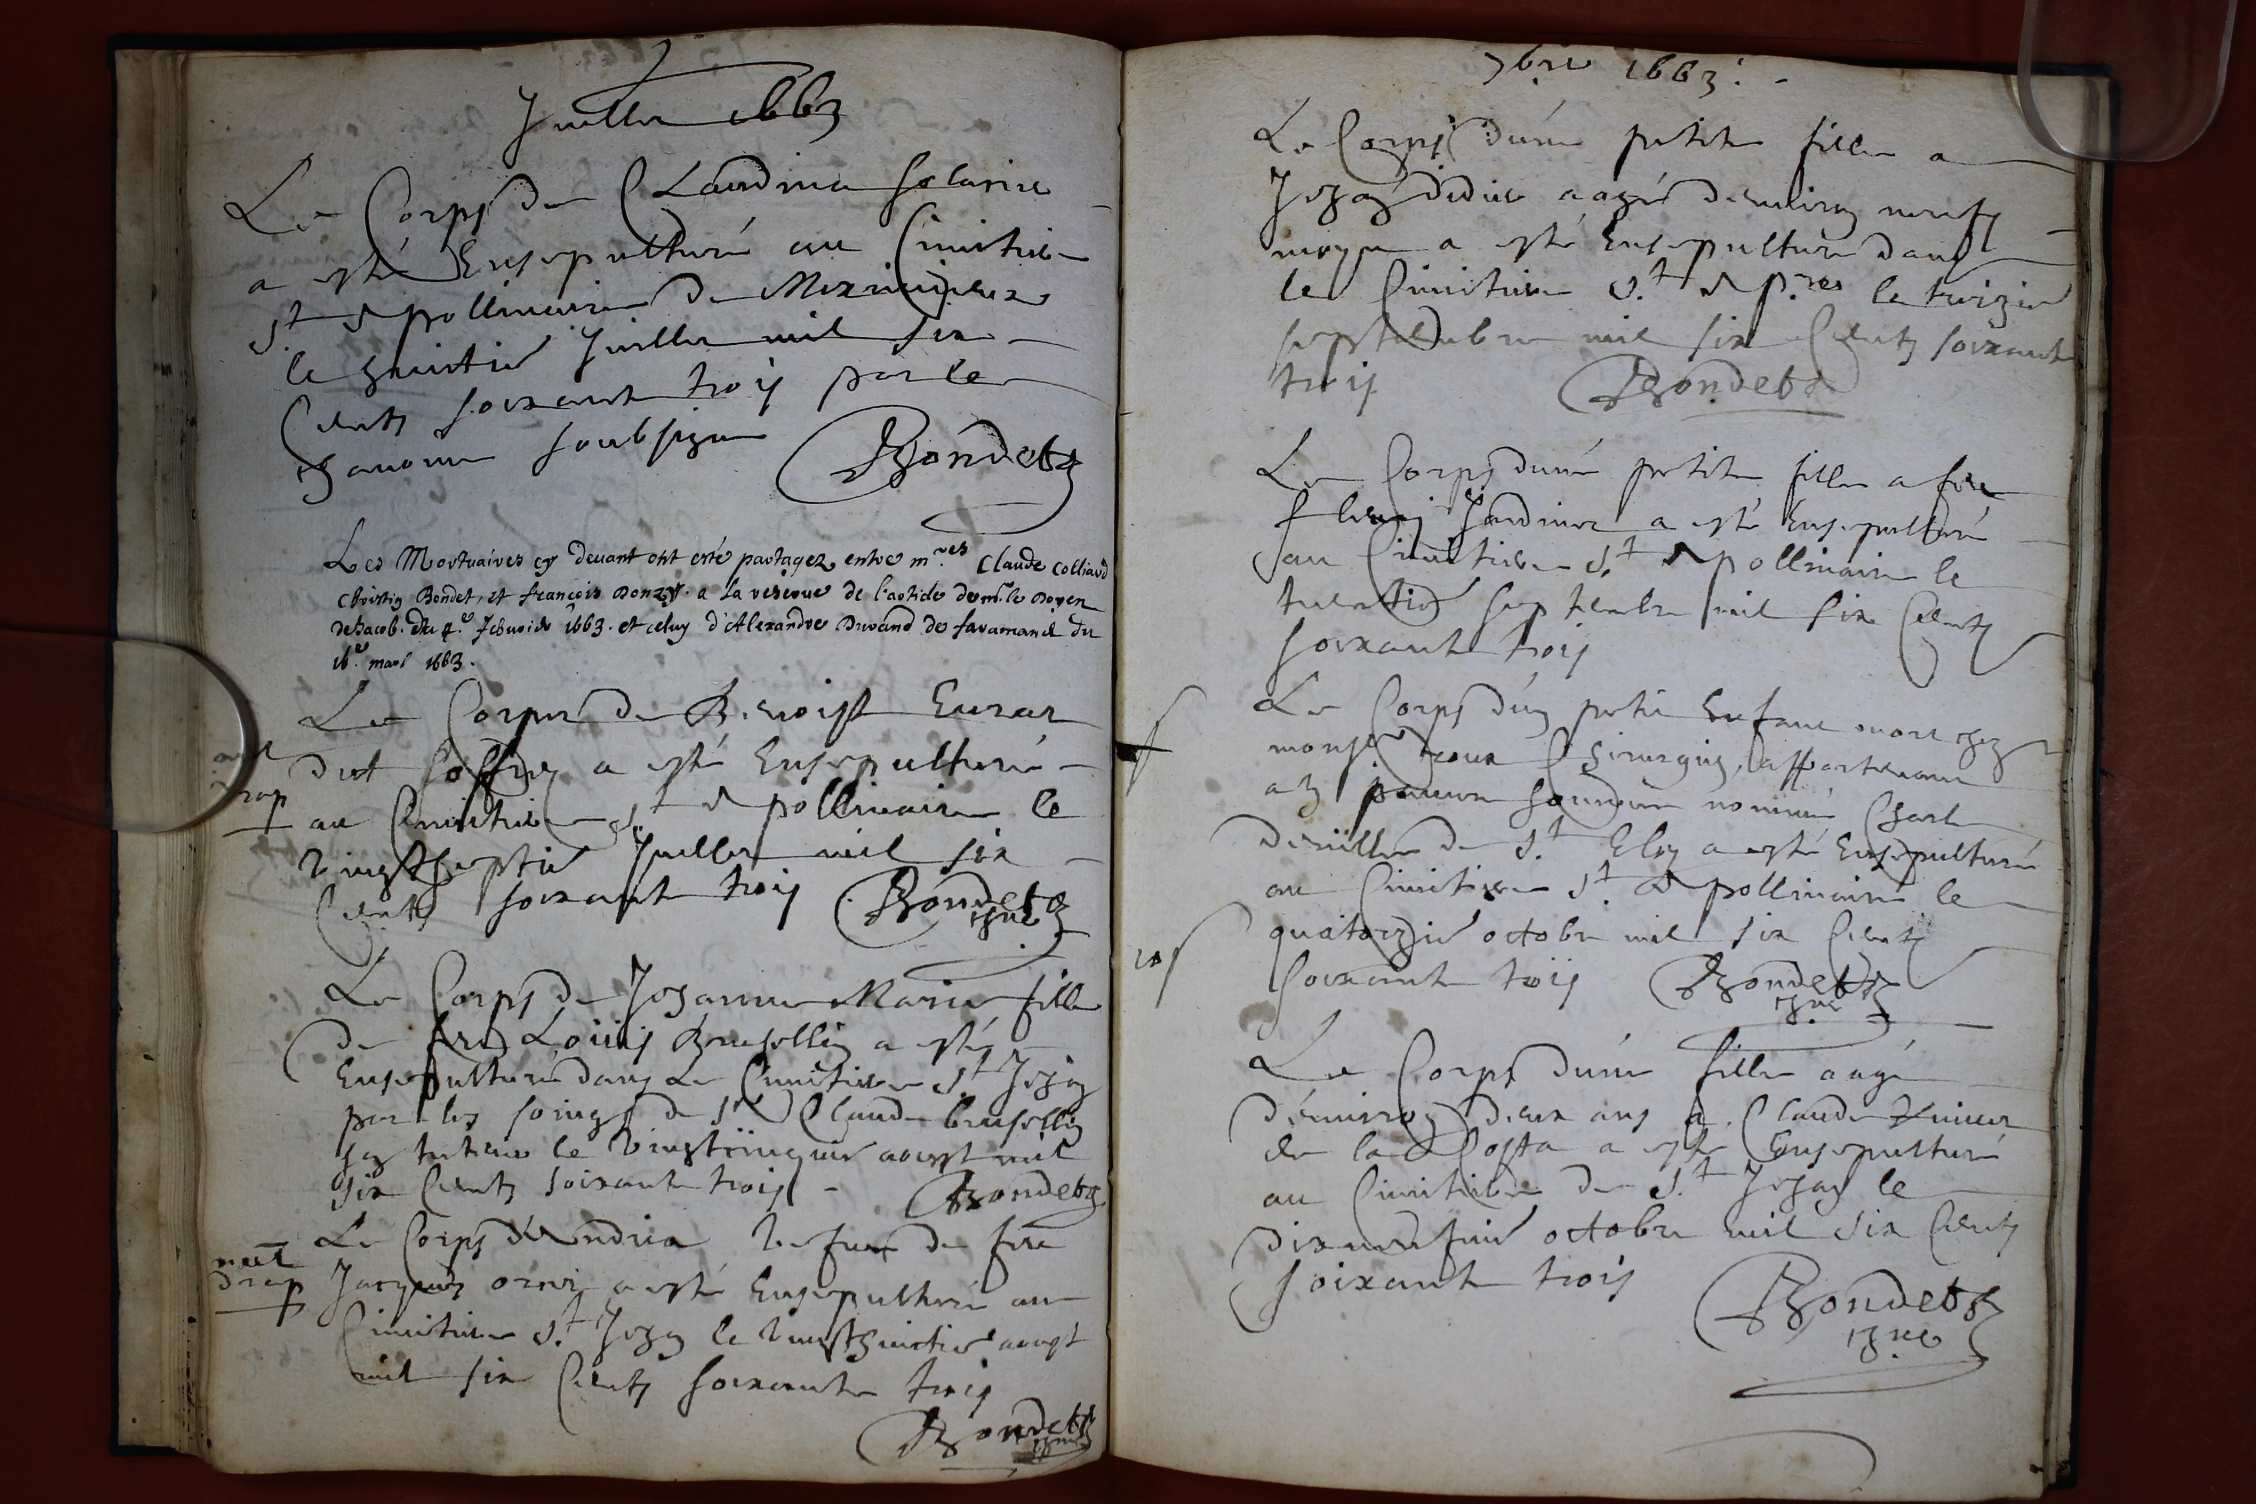 Juillet 1663
Le Corps de Claudina
a esté Ensepulturé au Cimitiere
St Apollinaire de Meximieux
le huictie Juillet mil six
Cents soixante trois par le
chanoine soubsigne Bondet
Les Mortuaires cy devant ont esté partagez entre mres Claude Colliard
Christin Bondet, et françois Donzy. a la reserve de l'article de mr. le Doyen
de Jacob. du 4.e Febvrier 1663. et celuy d'Alexandre Durand de la
16.e mars 1663.
Le Corps de Benoist
dict a esté Ensepulturé
drap
au Cimitiere St Apollinaire le
vingtseptie Juillet mil six
Cents soixante trois Bondet
chne
Le Corps de Jehanne Marie fille
de feu Louis Brusellin a esté
Ensepulturé dans le Cimitiere St Jehan
par les soings de Sr Claude brusellin
son tuteur le vingtcinquie aoust mil
six Cents soixante trois - Bondet
Le Corps d'Andrea vefve de feu
drap
Jacques a esté Ensepulturé au
Cimitiere St Jehan le vingthuictie aoust
mil six Cents soixante trois
Bondet
chne
7bre 1663.
Le Corps d'une petite fille a
Jehan didier aagée d'environ neufz
moys a esté Ensepulturé dans
le Cimitiere St Ap.res le treizie
septembre mil six Cents soixante
trois Bondet
Le Corps d'une petite fille a feu
Jardinier a esté Ensepulturé
au Cimitiere St Apollinaire le
septembre mil six Cents
soixante trois
Le Corps d'un petit Enfant mort chez
monsr roux Chirurgien, appartenant
a un pauvre homme nommé Charle
de St Eloy a esté Ensepulturé
au Cimitiere St Apollinaire le
quatorzie octobre mil six Cents
soixante trois Bondet
chne
Le Corps d'une fille aagé
d'environ deux ans a Claude
de la Costa a esté Ensepulturé
au Cimitiere de St Jehan le
dixneufvie octobre mil six Cents
soixante trois
Bondet
chne